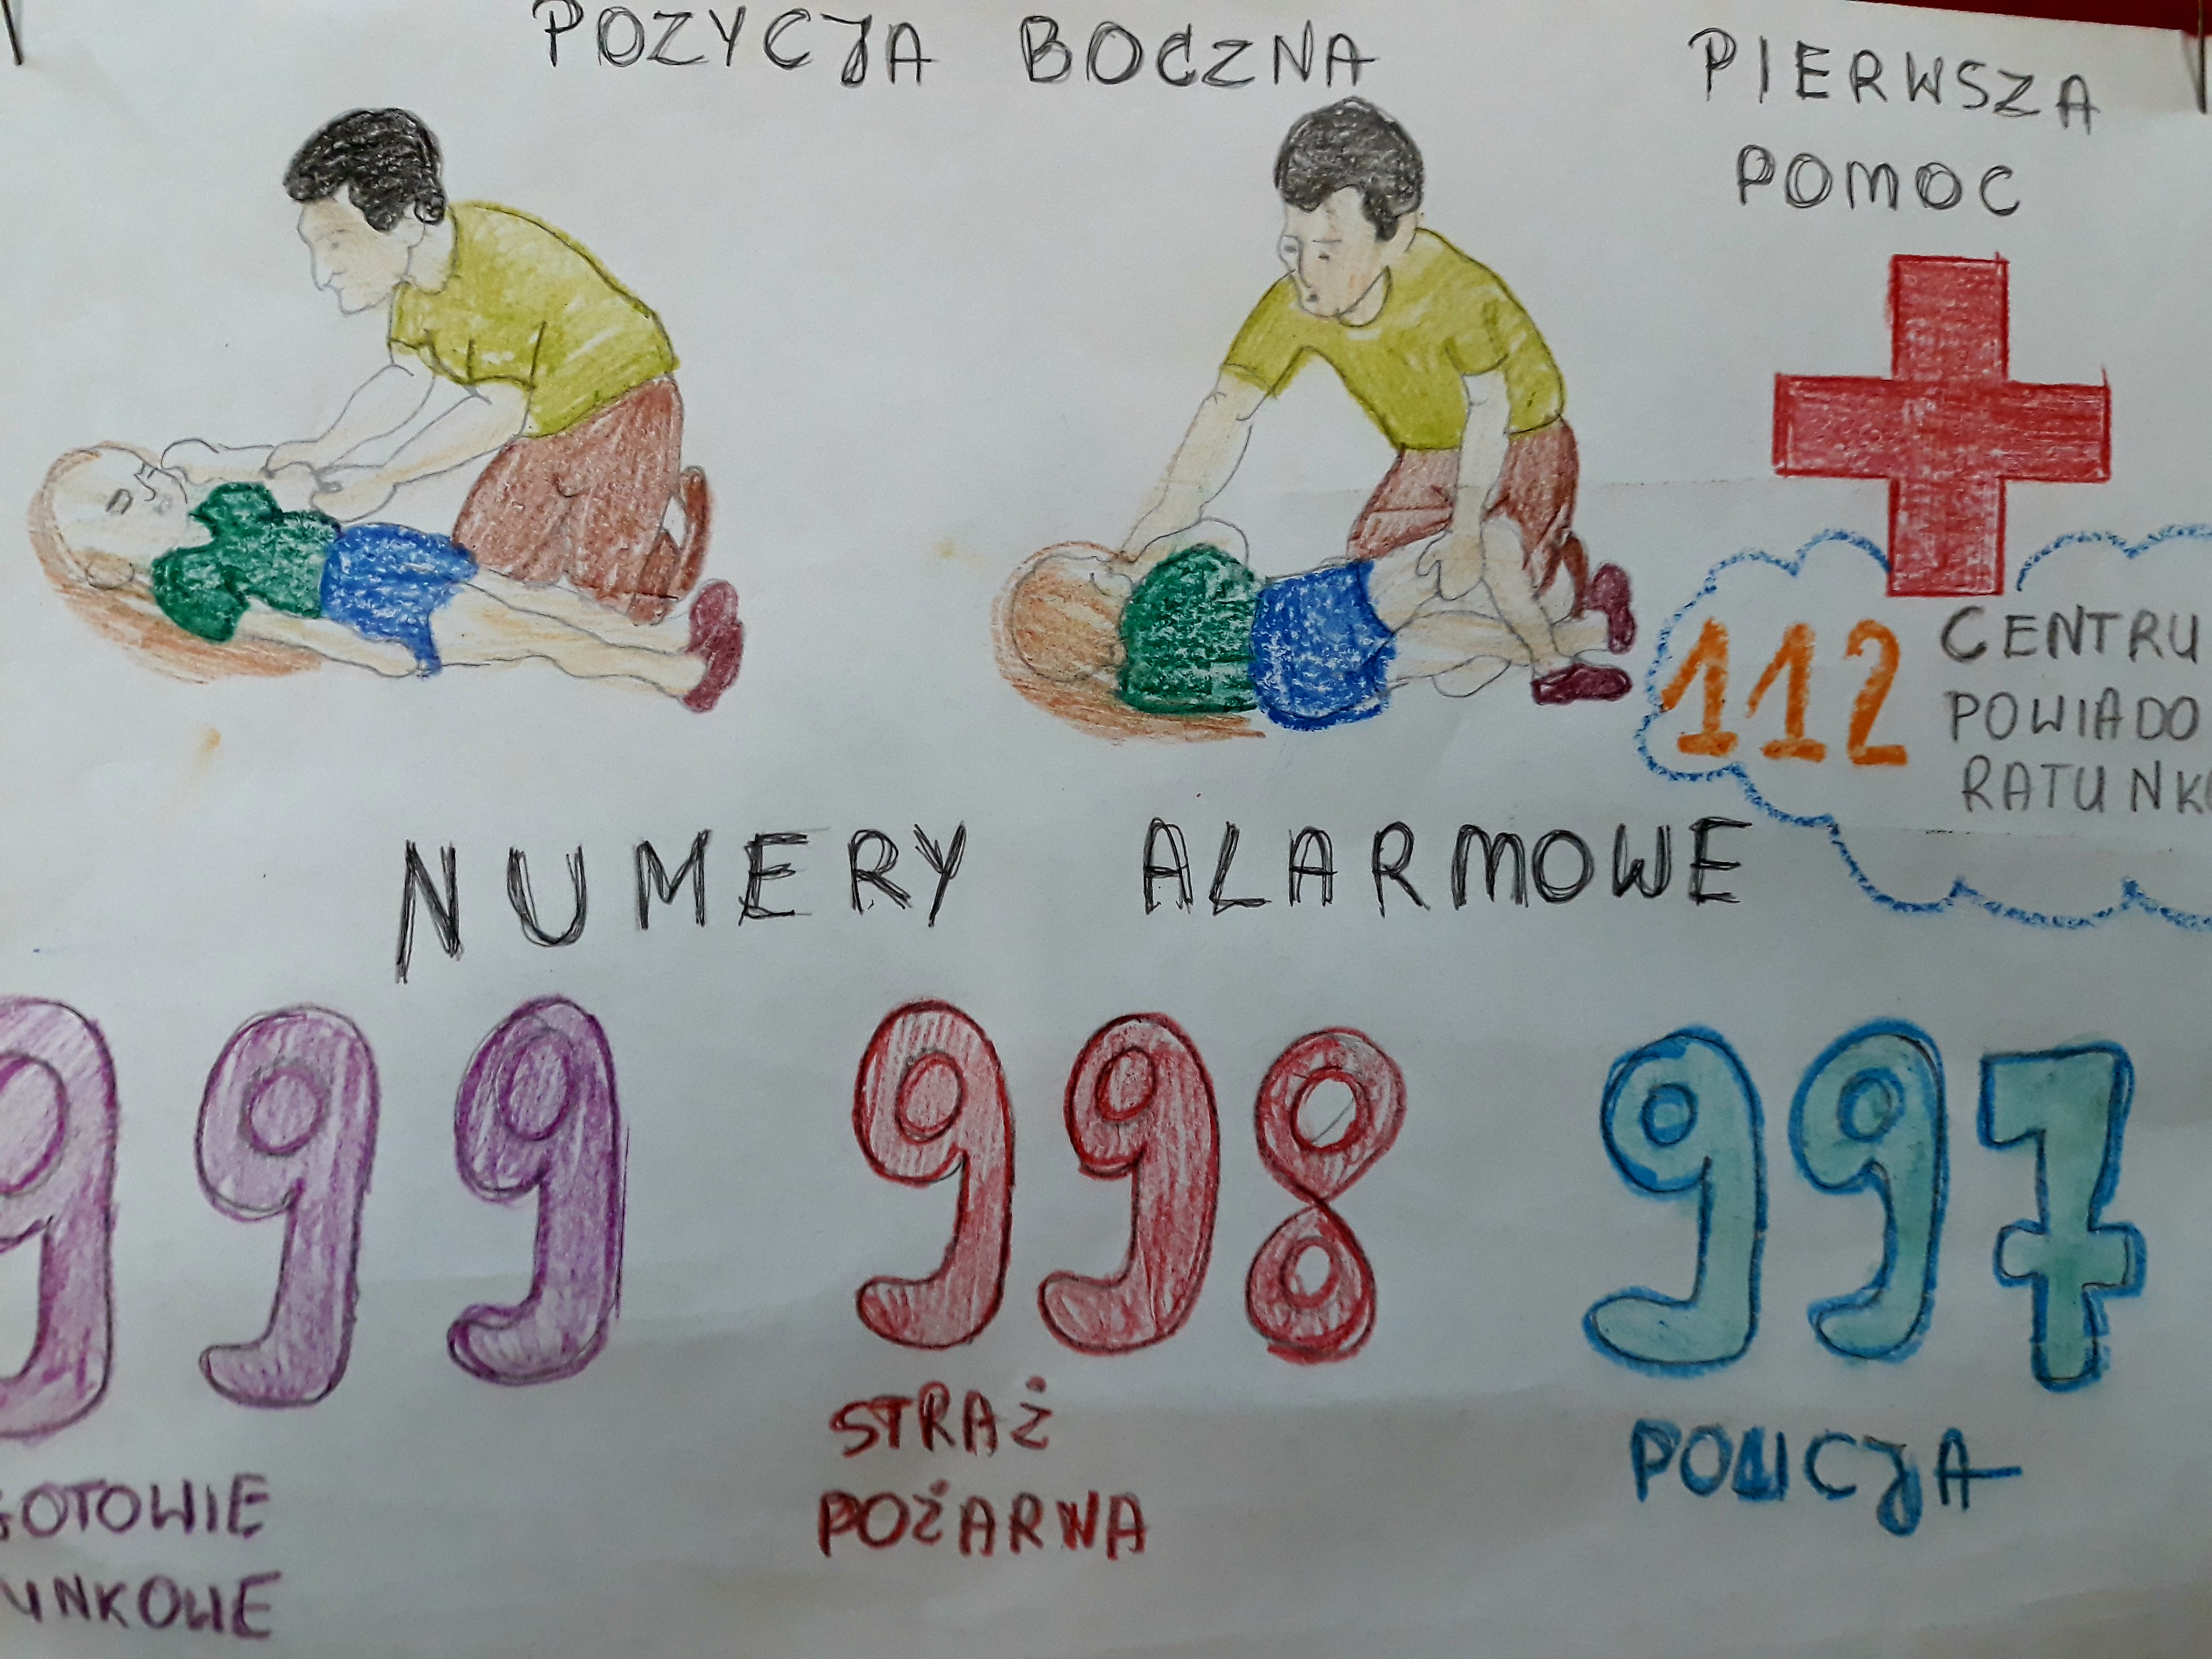 POZYCJA BOCZNA
PIERWSZA
POMOC
112 CENTRU
POWIADO
RATUNK
NUMERY ALARMOWE
999
998
997
GOTOWIE
UNKOWE
STRAŻ
POŻARNA
POLICJA